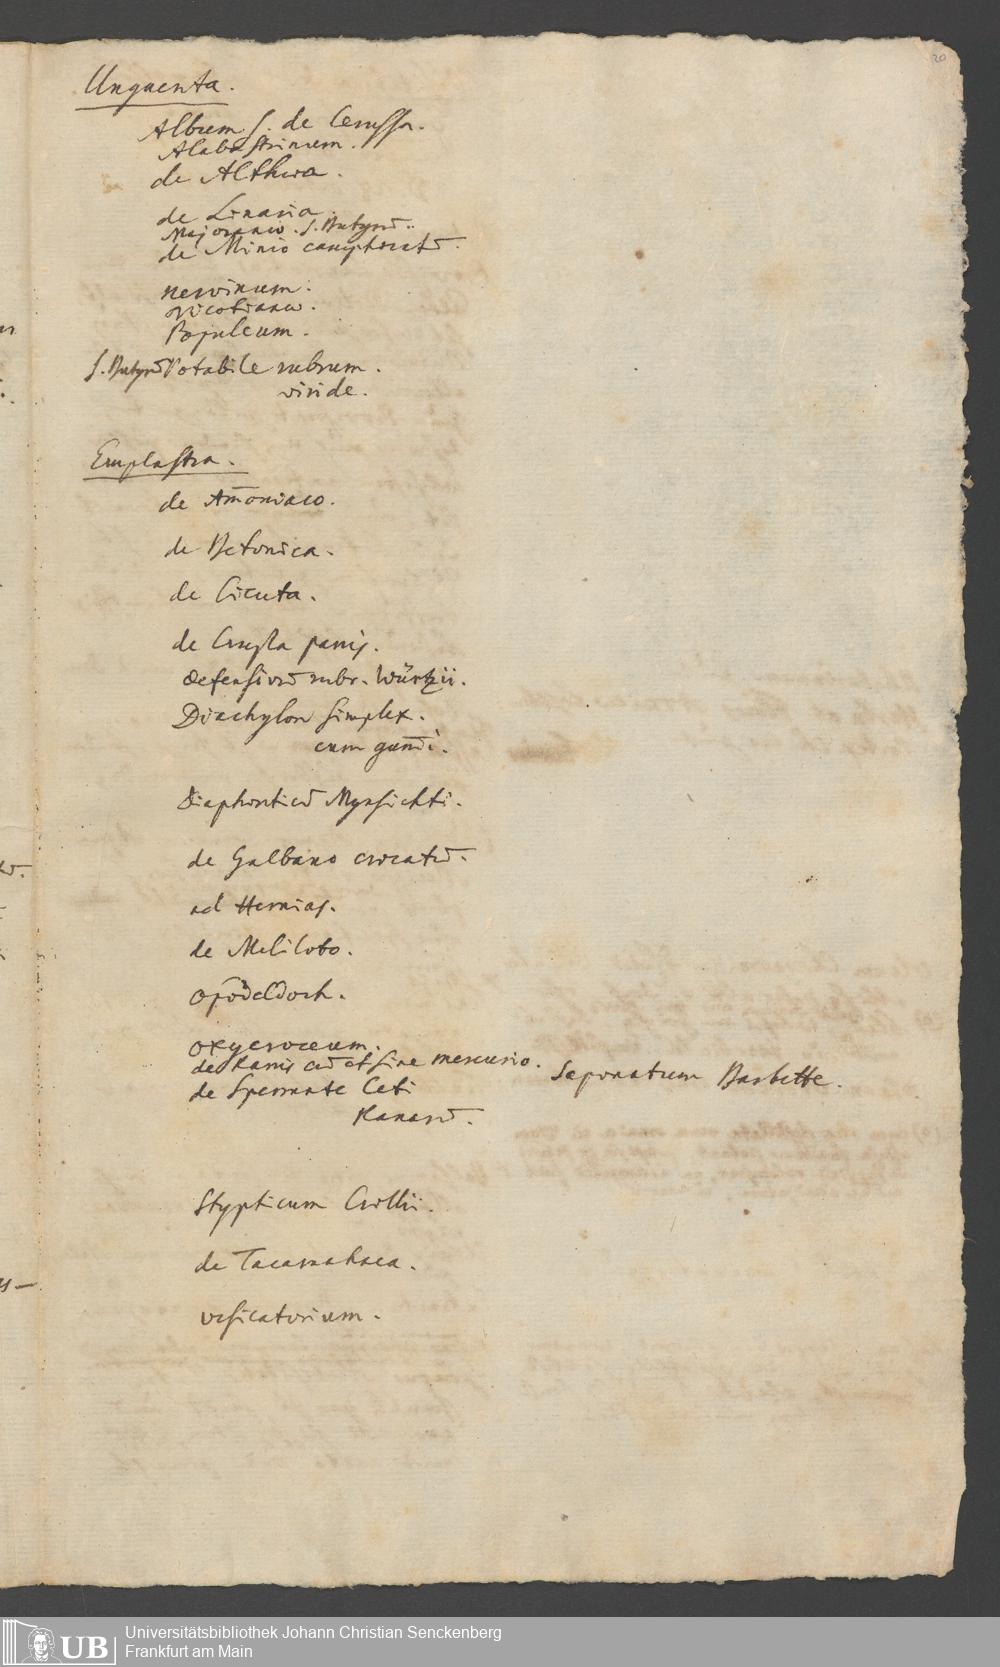 20
Unguenta.
Album s. de Cerussa.
Alabastrinum.
de Althæa.
de Linaria.
Majoranæ. s. Butyrū.
de Minio camphoratū.
nervinum.
Nicotianæ.
Populeum.
s. Butyrū Potabile rubrum.
viride.
Emplastra.
de Am̄oniaco.
de Betonica.
de Cicuta.
de Crusta panis.
defensivū rubr. Würtzii.
Diachylon simplex.
cum gum̄i.
Diaphoreticū Mynsichti.
de Galbano crocatū.
ad Hernias.
de Meliloto.
opodeldoch.
oxycroceum.
de Ranis cū et sine mercurio.
Saponatum Barbette.
de Spermate Ceti
Ranarū.
Stypticum Crollii.
de Tacamahaca.
vesicatorium.
UB
Universitätsbibliothek Johann Christian Senckenberg
Frankfurt am Main